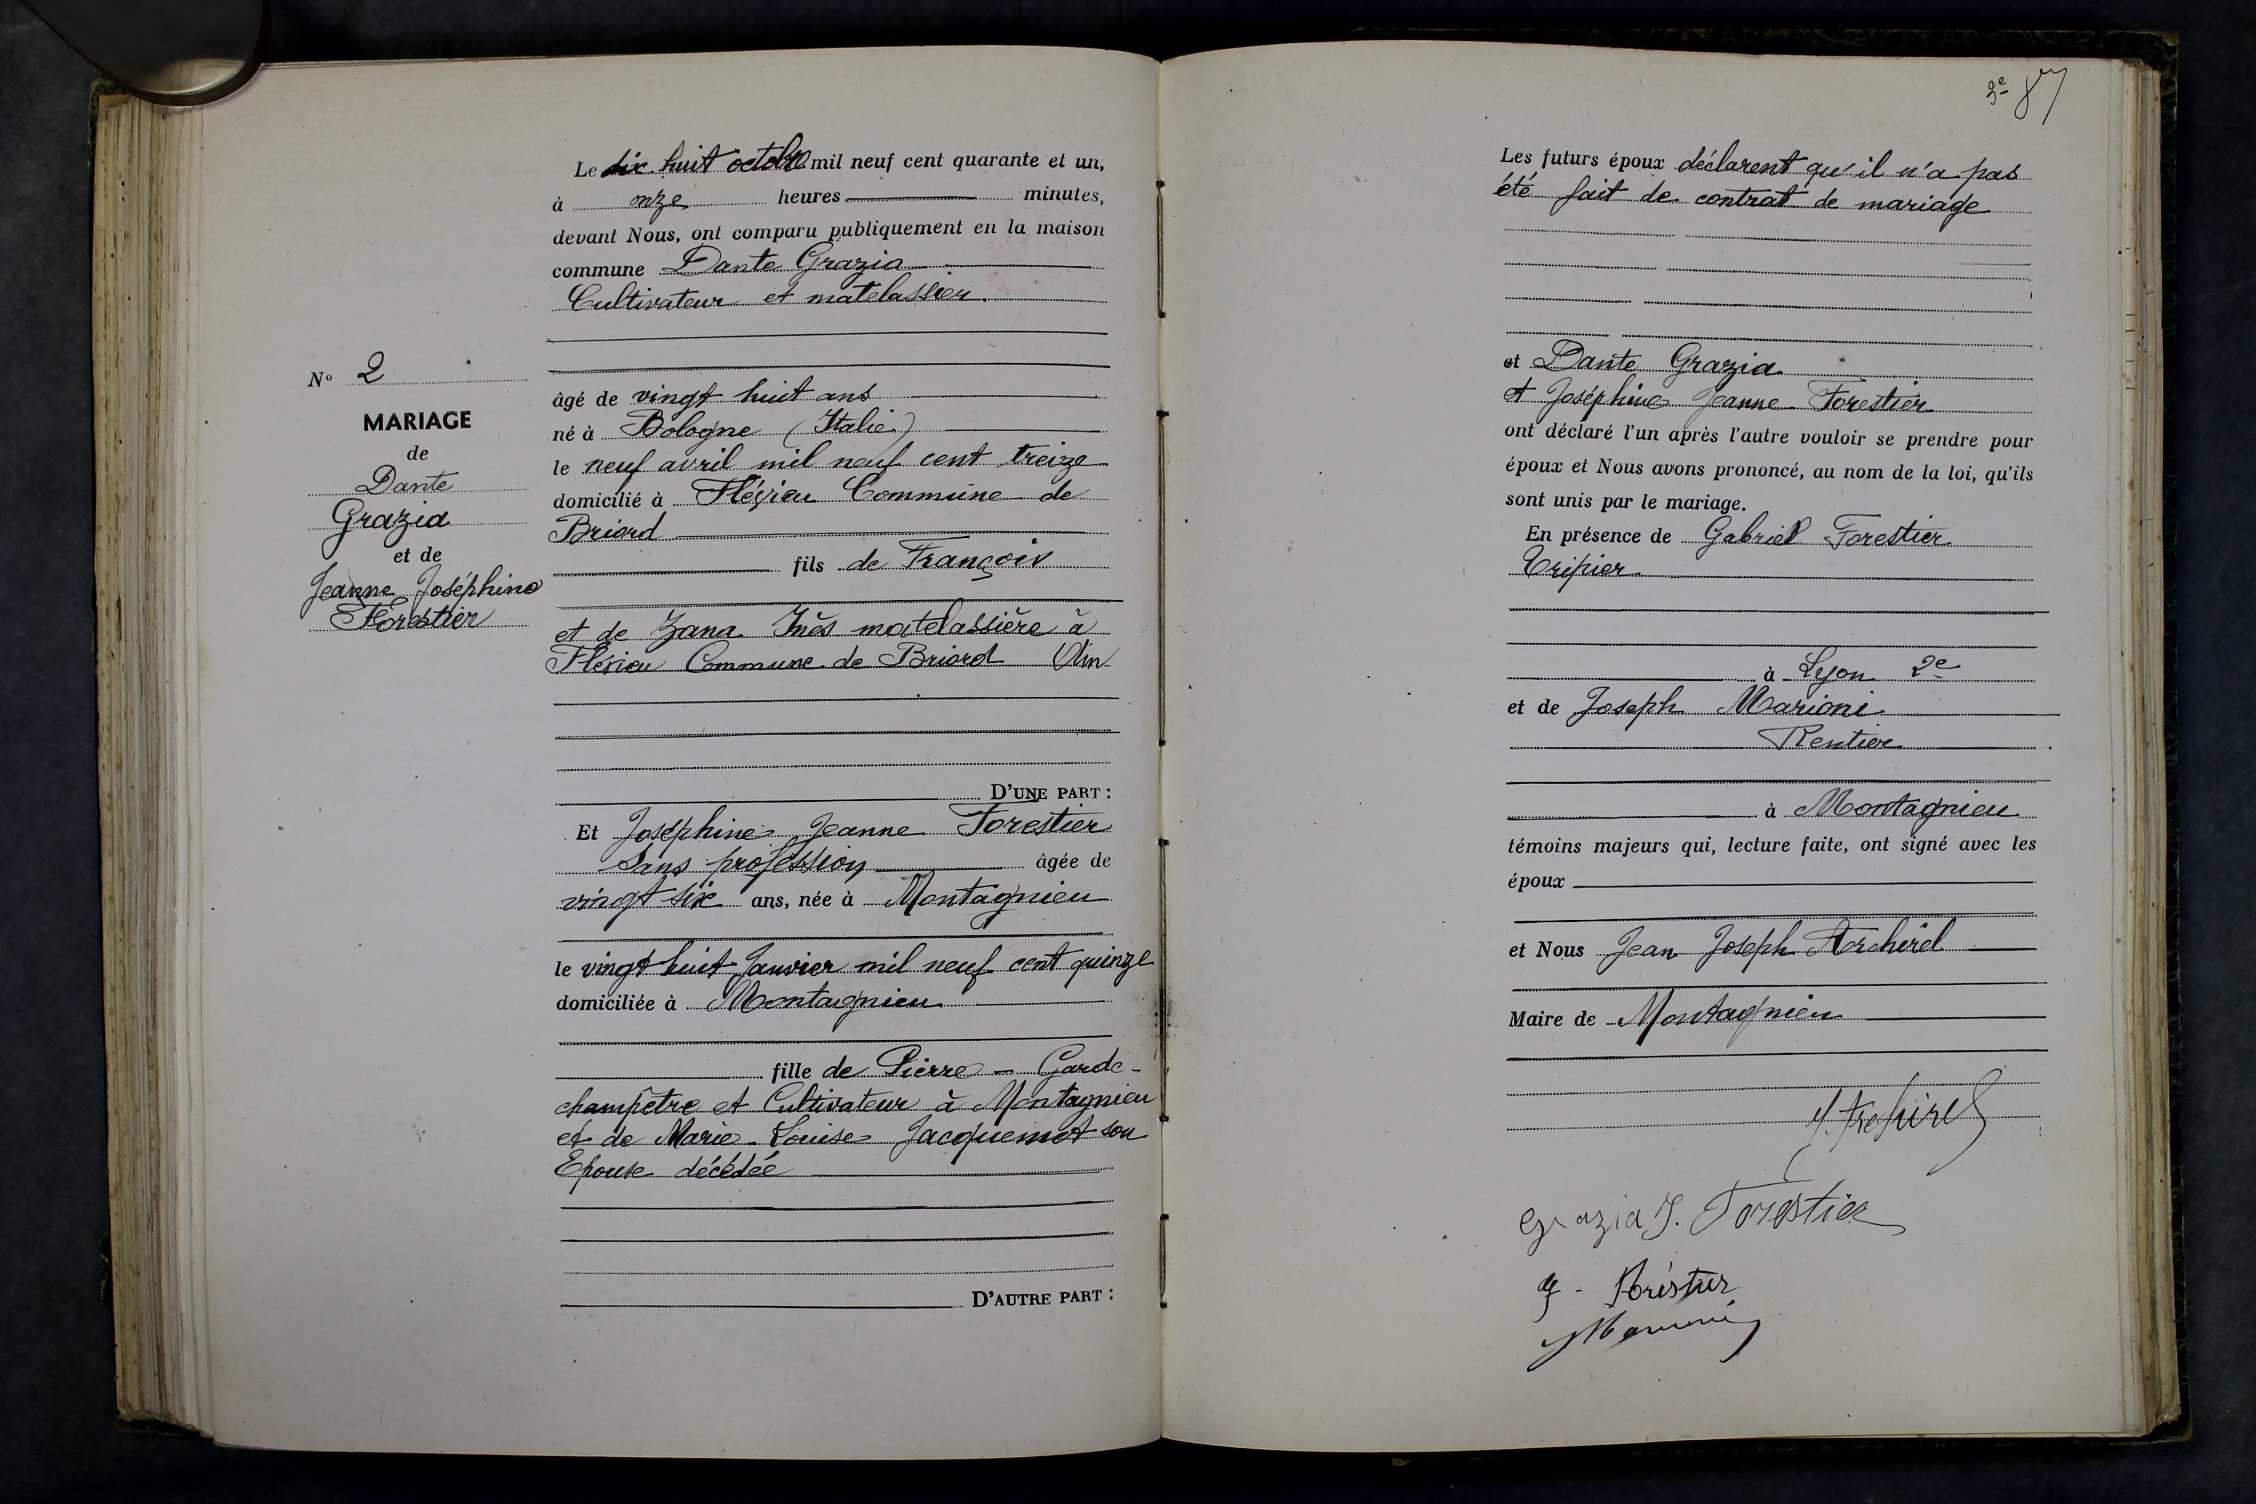 Le dix huit octobre mil neuf cent quarante et un,
à onze heures minutes,
devant Nous, ont comparu publiquement en la maison
commune Dante Grazia
Cultivateur et matelassier.
Nº 2
MARIAGE
de
Dante
Grazia
et de
Jeanne Joséphine
Forestier
âgé de vingt huit ans
né à Bologne (Italie)
le neuf avril mil neuf cent treize
domicilié à Flévieu Commune de
Briord
fils de François
et de Zana Inès matelassière à
Flévieu Commune de Briord Ain
D'UNE PART :
Et Joséphine Jeanne Forestier
Sans profession âgée de
vingt six ans, née à Montagnieu
le vingt huit Janvier mil neuf cent quinze
domiciliée à Montagnieu
fille de Pierre - Garde-
champêtre et Cultivateur à Montagnieu
et de Marie-Louise Jacquemet son
Epouse décédée
D'AUTRE PART :
87
Les futurs époux déclarent qu'il n'a pas
été fait de contrat de mariage
et Dante Grazia
et Joséphine Jeanne Forestier
ont déclaré l'un après l'autre vouloir se prendre pour
époux et Nous avons prononcé, au nom de la loi, qu'ils
sont unis par le mariage.
En présence de Gabriel Forestier
Tripier
à Lyon 2e
et de Joseph Marioni
Rentier
à Montagnieu
témoins majeurs qui, lecture faite, ont signé avec les
époux
et Nous Jean Joseph Archirel
Maire de Montagnieu
J. Archirel
Grazia J. Forestier
G - Forestier
Marioni